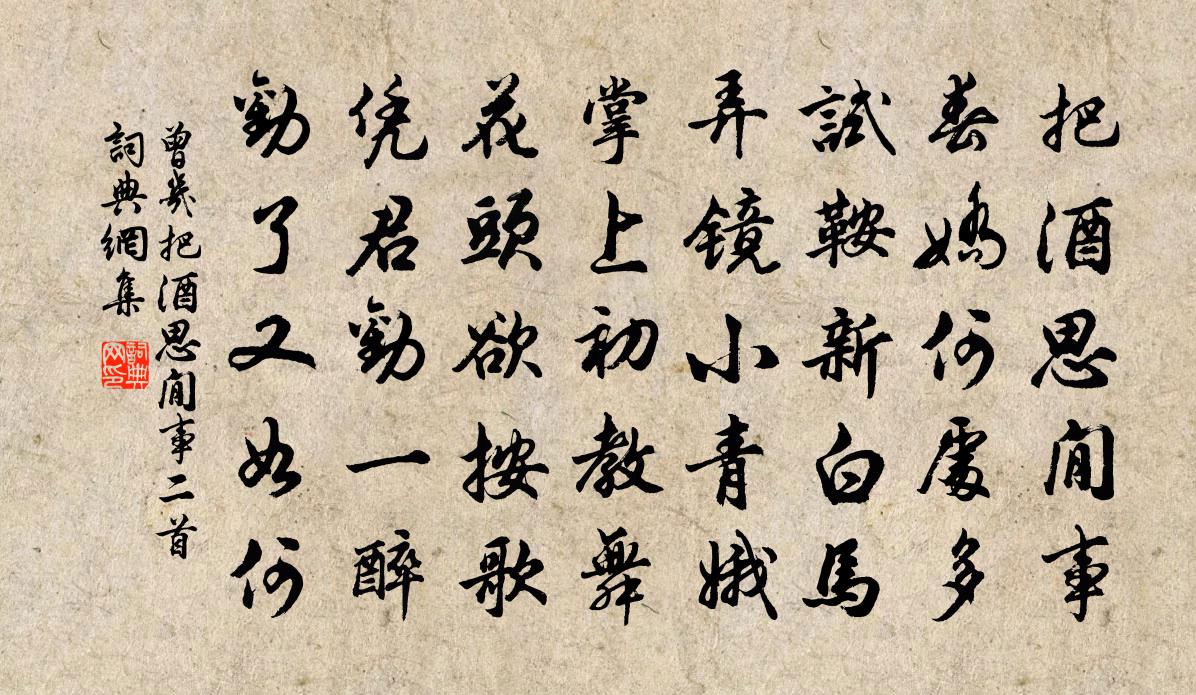 把酒思閒事
春嬌何處多
試鞍新白馬
弄鏡小青娥
掌上初教舞
花頭欲按歌
凭君勸一醉
勸了又如何
曾幾把酒思閒事二首
詞典網集
詞典网印